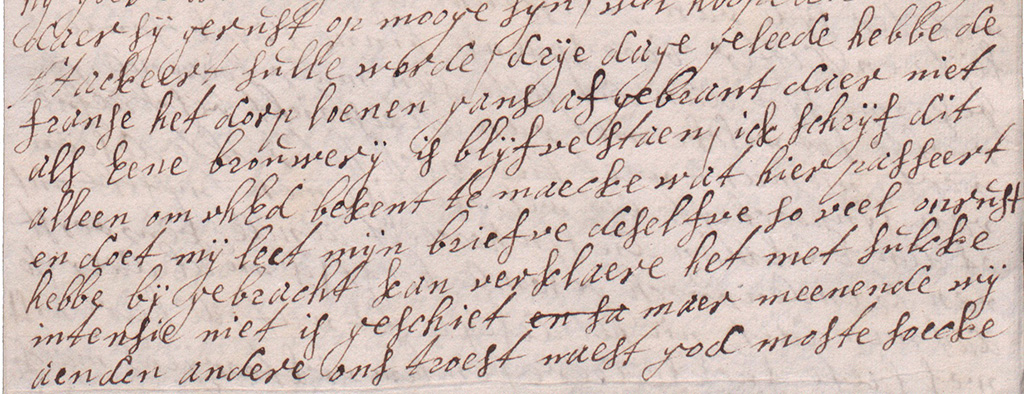 daer sy gerust op mooge syn,
attackeert sulle worde / drye dage geleede hebbe de
franse het dorp loenen gans af gebrant daer niet
als eene brouwery is blyfve staen / ick schryf dit
alleen om uhEd bekent te maecke wat hier passeert
en doet my leet myn briefve deselfve so veel onrust
hebbe by gebracht kan verklaere het met sulcke
intensie niet is geschiet en sa maer meenende wy
aenden andere ons troest naest god moste soecke